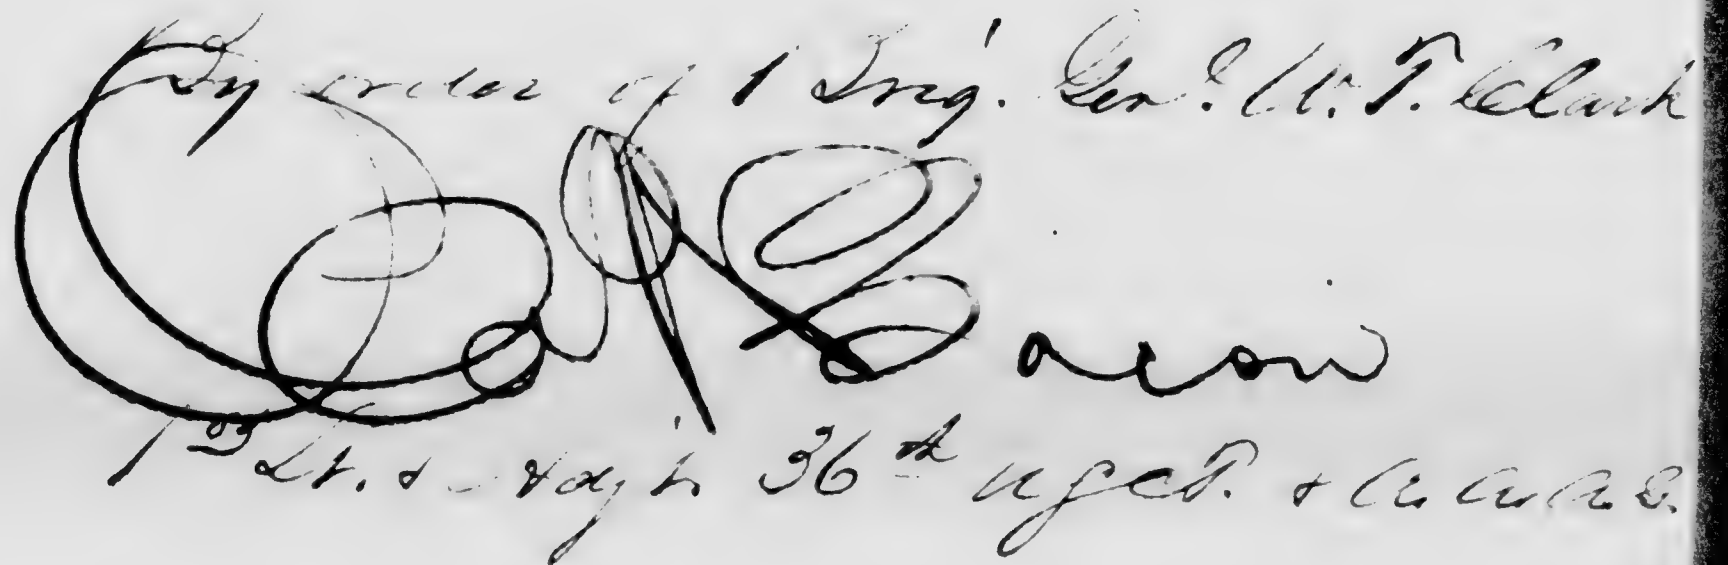 By order of Brig. Genl. W. T. Clark
Bacon
1st Lt. & Adjt. 36th USCT. & A. A. A. G.